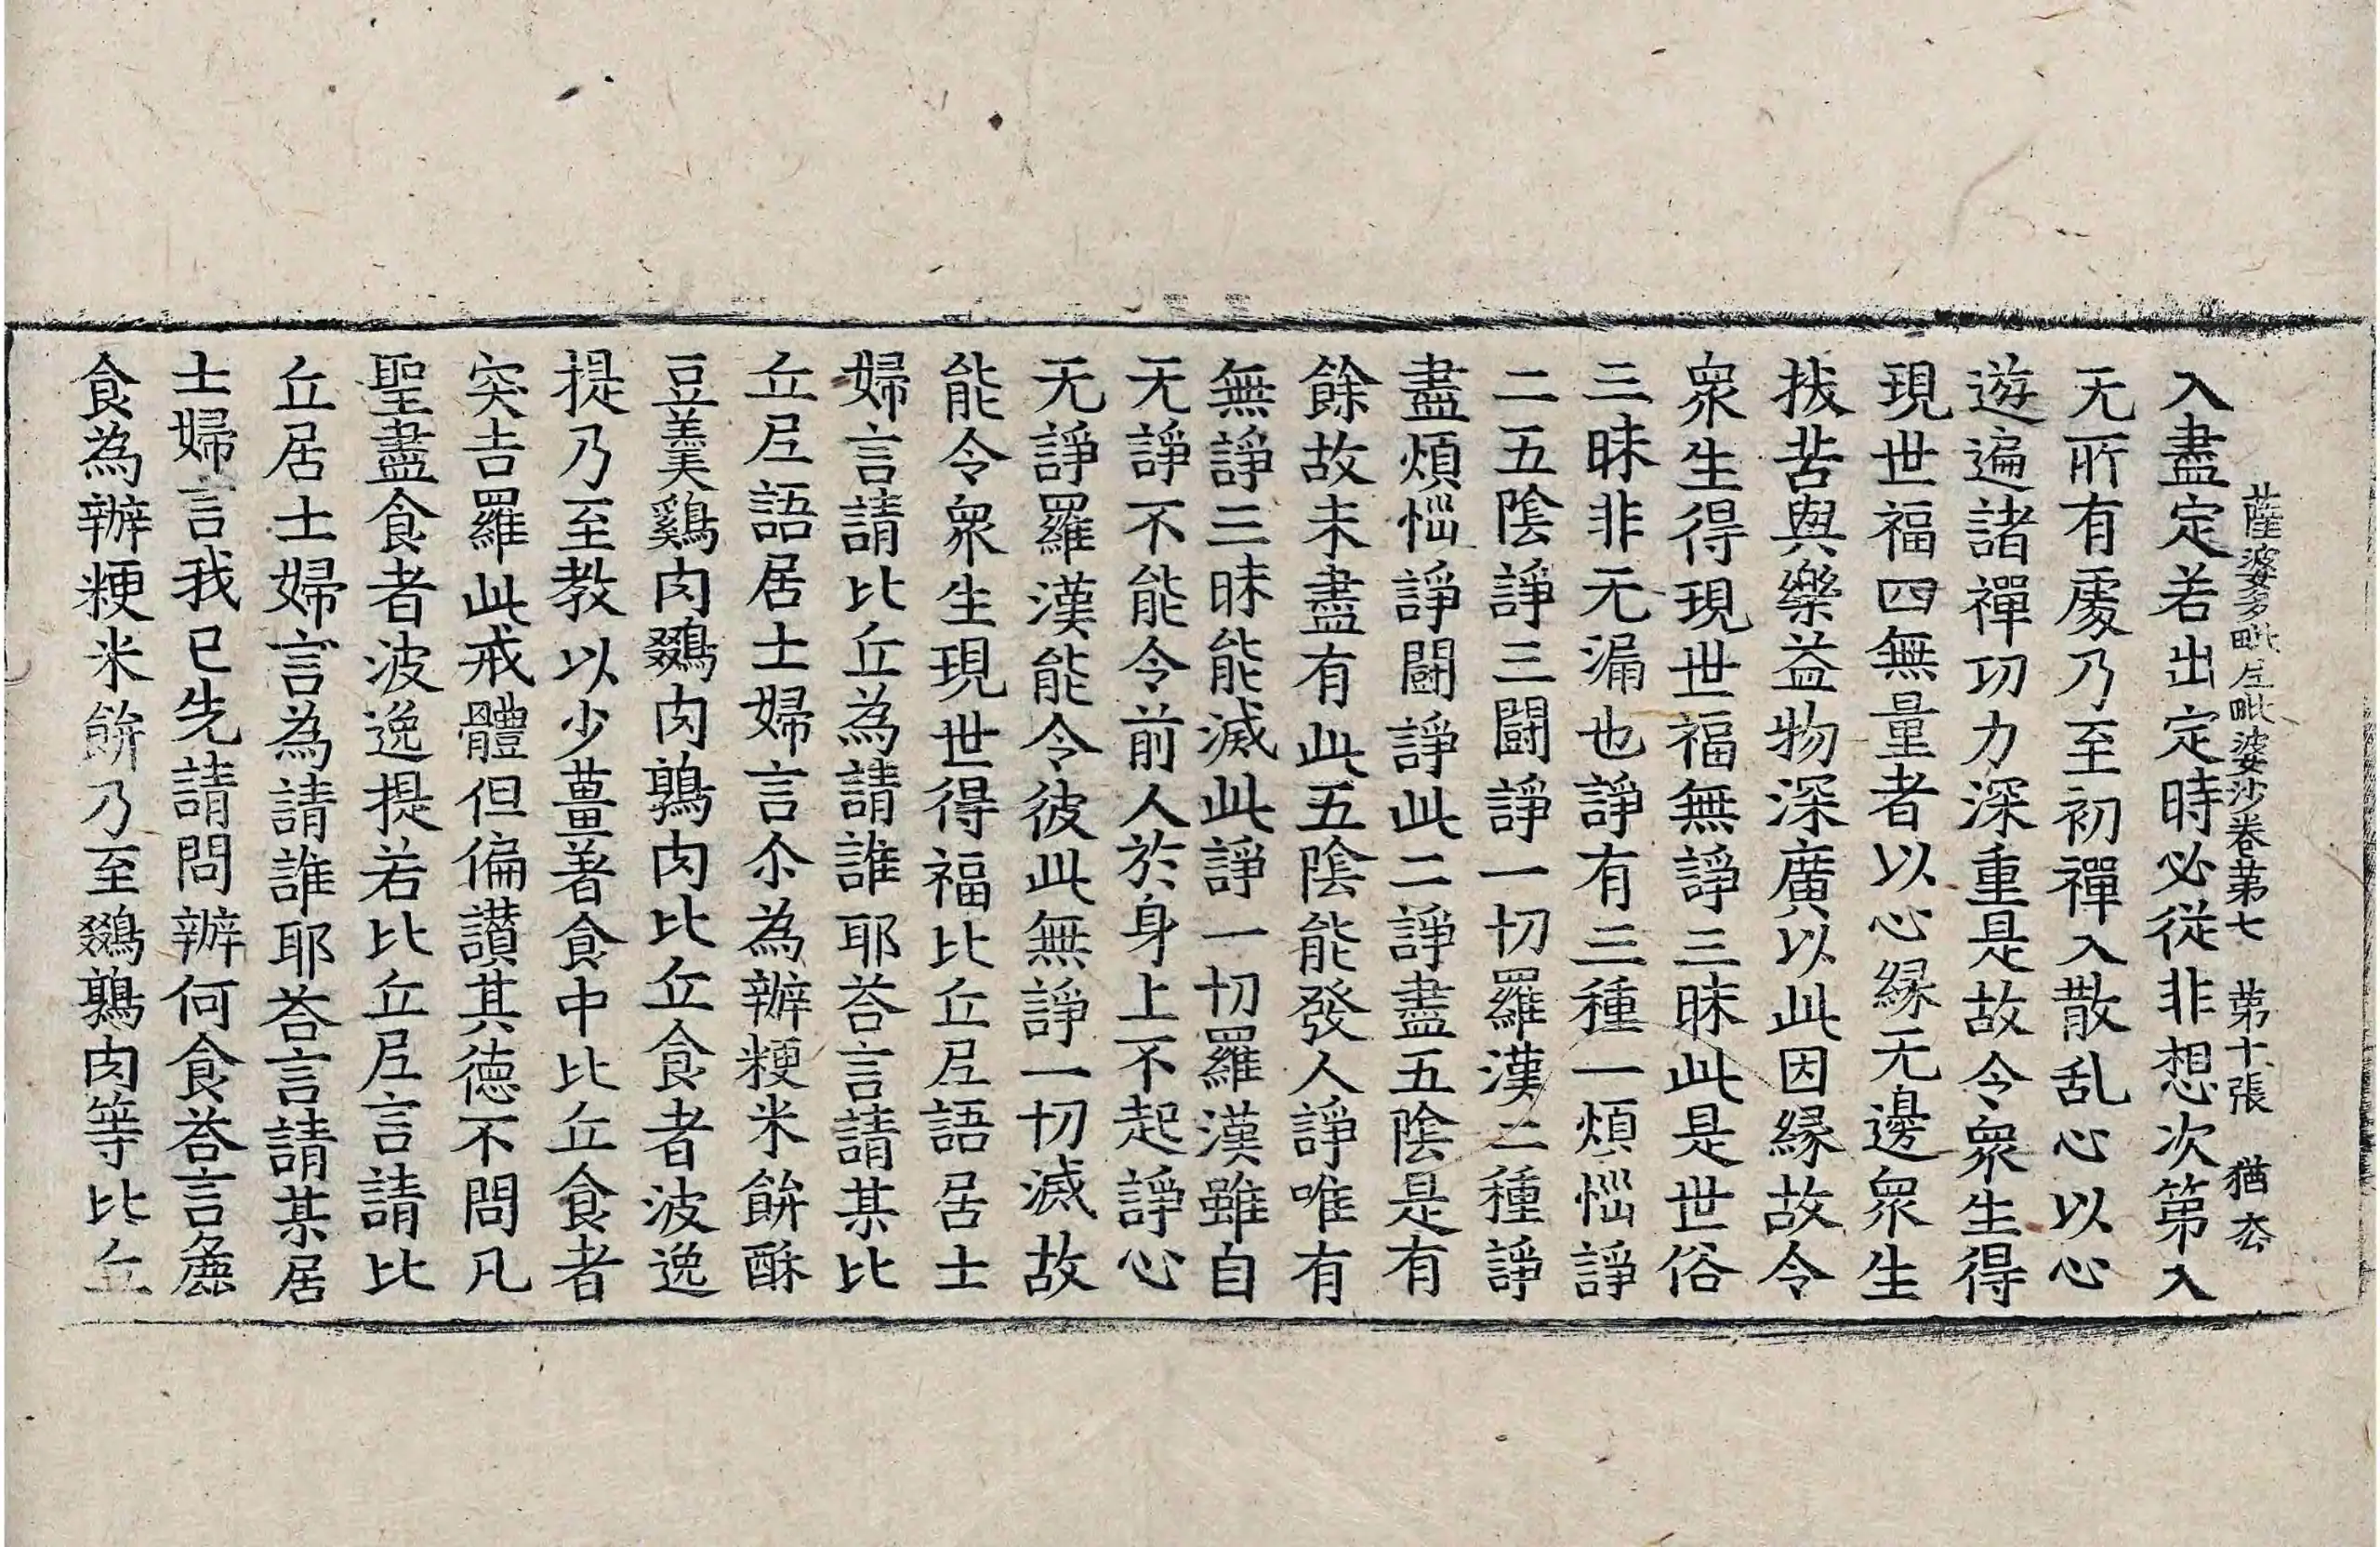 薩婆多毗尼毗婆沙卷第七 第十張 猶
入盡定若出定時必從非想次第入
无所有處乃至初禪入散乱心以心
遊遍諸禪功力深重是故令衆生得
現世福四無量者以心緣无邊衆生
拔苦與樂益物深廣以此因緣故令
衆生得現世福無諍三昧此是世俗
三昧非无漏也諍有三種一煩惱諍
二五陰諍三鬪諍一切羅漢二種諍
盡煩惱諍鬪諍此二諍盡五陰是有
餘故未盡有此五陰能發人諍唯有
無諍三昧能滅此諍一切羅漢雖自
无諍不能令前人於身上不起諍心
无諍羅漢能令彼此無諍一切滅故
能令衆生現世得福比丘尼語居士
婦言請比丘為請誰耶荅言請某比
丘尼語居士婦言尒為辦粳米飯酥
豆羹鷄肉鵽肉鶉肉比丘食者波逸
提乃至教以少薑著食中比丘食者
突吉羅此戒體但偏讃其德不問凡
聖盡食者波逸提若比丘尼言請比
丘居士婦言為請誰耶荅言請某居
士婦言我已先請問辦何食荅言麁
食為辦粳米飯乃至鵽鶉肉等比丘